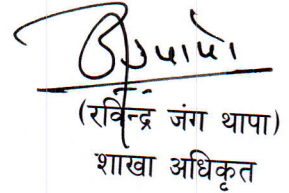 (रविन्द्र जंग थापा)
शाखा अधिकृत